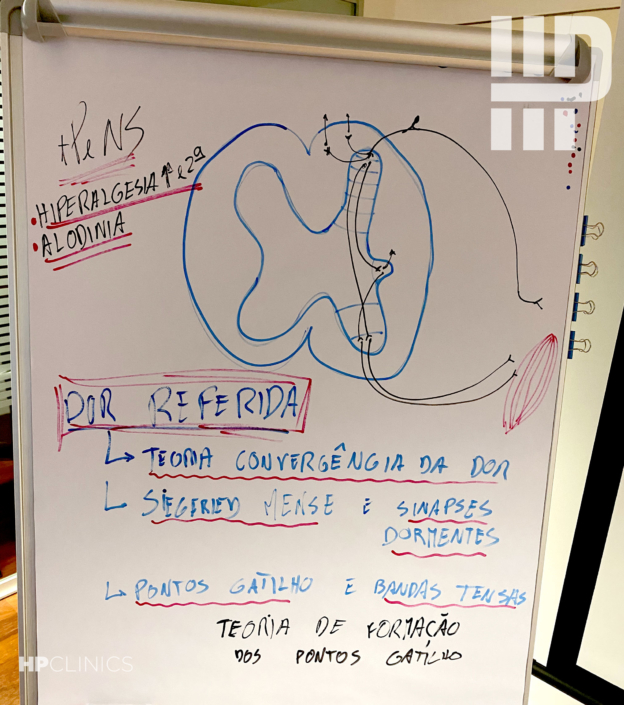 tPeNS
• HIPERALGESIA 1ª e 2ª
• ALODINIA
DOR REFERIDA
↳ TEORIA CONVERGÊNCIA DA DOR
↳ SIEGFRIED MENSE E SINAPSES
DORMENTES
↳ PONTOS GATILHO E BANDAS TENSAS
TEORIA DE FORMAÇÃO
DOS PONTOS GATILHO
HPCLINICS